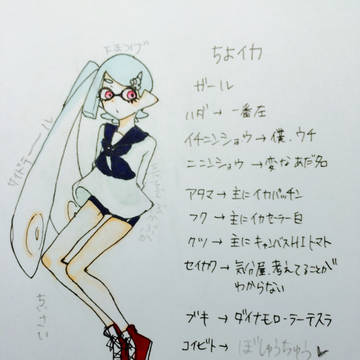 ちよイカ
ガール
ハダ→一番左
イチニンショウ→僕、ウチ
ニニンショウ→変なあだ名
アタマ→主にイカパッチン
フク→主にイカセーラー白
クツ→主にキャンバスHiトマト
セイカク→気分屋、考えてることが
わからない
ブキ→ダイナモローラーテスラ
コイビト→ぼしゅうちゅう♥
下まつげ
サイドテール
ちくさい